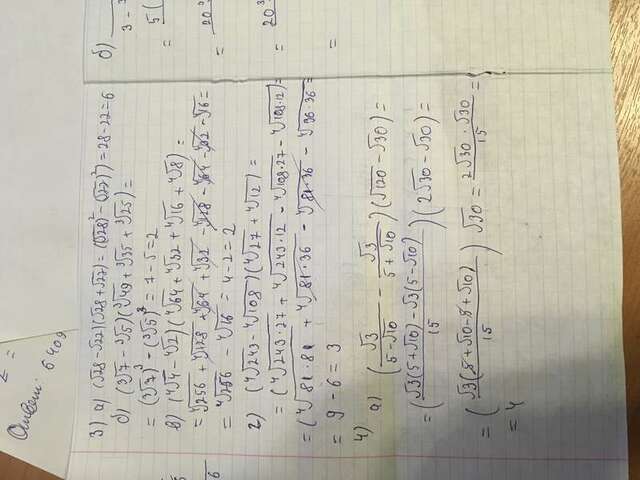 Ответ: 6409
3) а) (√28 - √22)(√28 + √22) = ((√28)² - (√22)²) = 28 - 22 = 6
б) (∛7 - ∛5)(∛49 + ∛35 + ∛25) =
= (∛7)³ - (∛5)³ = 7 - 5 = 2
в) (⁴√4 - ⁴√2)(⁴√64 + ⁴√32 + ⁴√16 + ⁴√8) =
= ⁴√256 + ⁴√128 + ⁴√64 + ⁴√32 - ⁴√128 - ⁴√64 - ⁴√32 - ⁴√16 =
= ⁴√256 - ⁴√16 = 4 - 2 = 2
г) (⁴√243 - ⁴√108)(⁴√27 + ⁴√12) =
= (⁴√243·27 + ⁴√243·12 - ⁴√108·27 - ⁴√108·12) =
= (⁴√81·81 + ⁴√81·36 - ⁴√81·36 - ⁴√36·36 =
= 9 - 6 = 3
4) а) (√3/(5-√10) - √3/(5+√10))(√120 - √30) =
= (√3(5+√10) - √3(5-√10)/15)(2√30 - √30) =
= (√3(5+√10-5+√10)/15) √30 = 2√30·√30/15 =
= 4
б)
3 -
5(
=
20
=
20
=
=